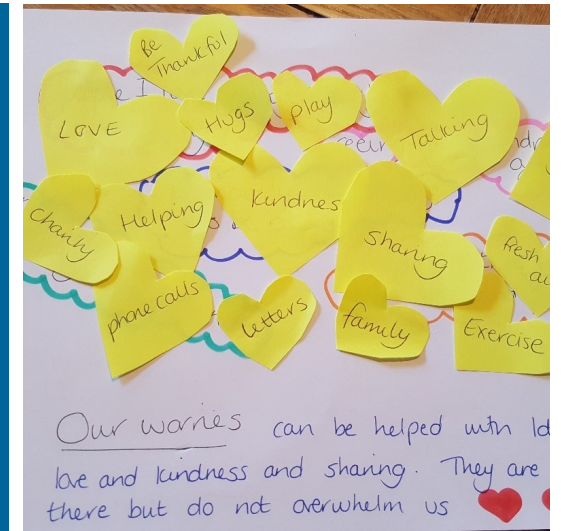 Be
Thankful
LOVE
Hugs
play
Talking
Charity
Helping
kindnes
sharing
fresh
phone calls
letters
family
Exercise
Our worries can be helped with
love and kindness and sharing. They are
there but do not overwhelm us